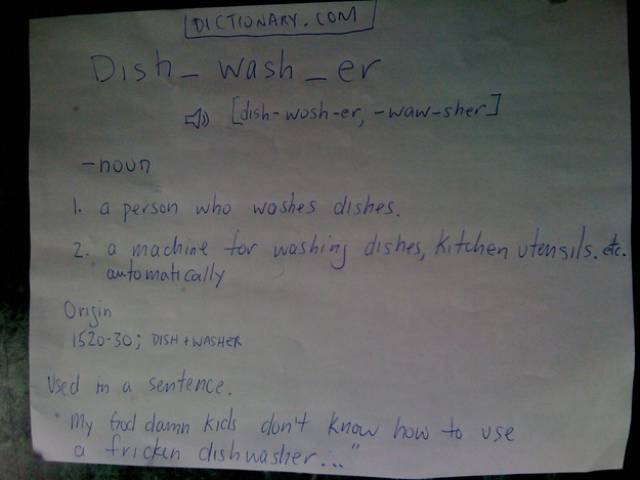 DICTIONARY.COM
Dish_wash_er
[dish-wosh-er, -waw-sher]
-noun
1. a person who washes dishes.
2. a machine for washing dishes, kitchen utensils. etc.
automatically
Origin
1520-30; DISH + WASHER
Used in a sentence.
"My God damn kids don't know how to use
a fricken dishwasher..."